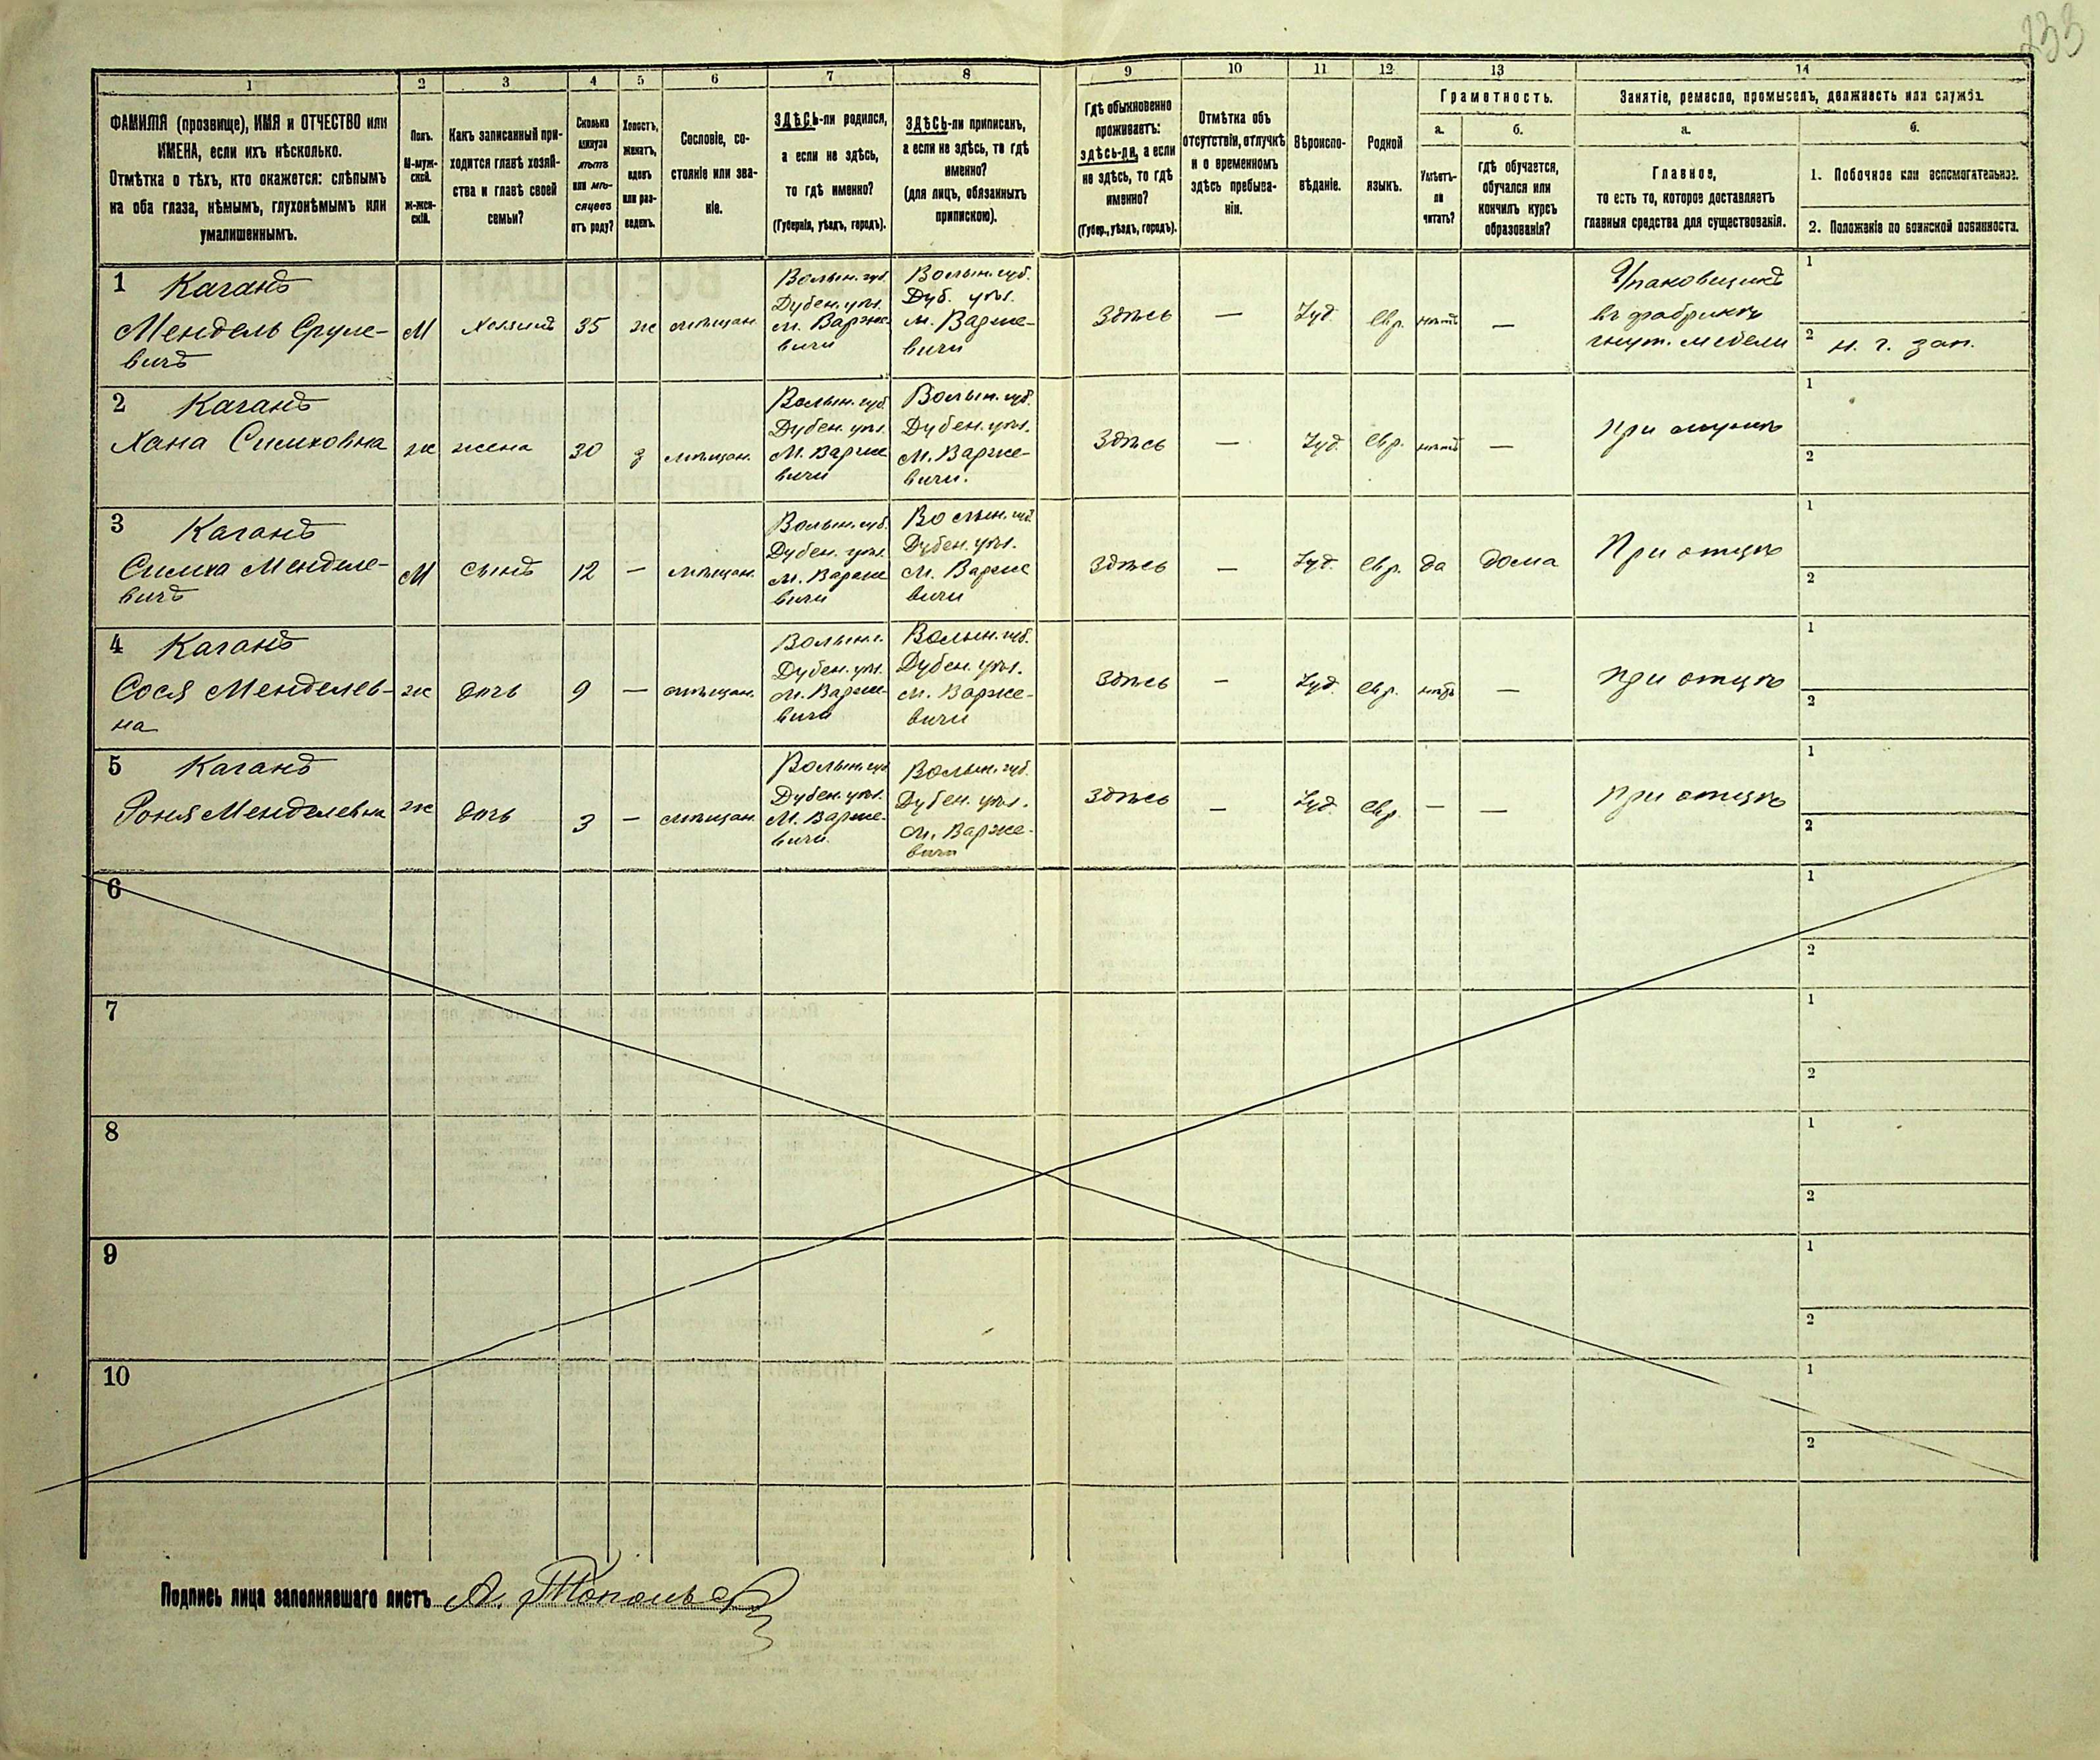 233
1 2 3 4 5 6 7 8 9 10 11 12 13 14
ФАМИЛІЯ (прозвище), ИМЯ и ОТЧЕСТВО или
ИМЕНА, если ихъ нѣсколько.
Отмѣтка о тѣхъ, кто окажется: слѣпымъ
на оба глаза, нѣмымъ, глухонѣмымъ или
умалишеннымъ.
Полъ.
М-муж-
ской.
Ж-жен-
скій.
Какъ записанный при-
ходится главѣ хозяй-
ства и главѣ своей
семьи?
Сколько
минуло
лѣтъ
или мѣ-
сяцевъ
отъ роду?
Холостъ,
женатъ,
вдовъ
или раз-
веденъ.
Сословіе, со-
стояніе или зва-
ніе.
ЗДѢСЬ-ли родился,
а если не здѣсь,
то гдѣ именно?
(Губернія, уѣздъ, городъ).
ЗДѢСЬ-ли приписанъ,
а если не здѣсь, то гдѣ
именно?
(для лицъ, обязанныхъ
припискою).
Гдѣ обыкновенно
проживаетъ:
здѣсь-ли, а если
не здѣсь, то гдѣ
именно?
(Губер., уѣздъ, городъ).
Отмѣтка объ
отсутствіи, отлучкѣ
и о временномъ
здѣсь пребыва-
ніи.
Вѣроиспо-
вѣданіе.
Родной
языкъ.
Грамотность.
а.
Умѣетъ-
ли
читать?
б.
гдѣ обучается,
обучался или
кончилъ курсъ
образованія?
Занятіе, ремесло, промыселъ, должность или служба.
а.
Главное,
то есть то, которое доставляетъ
главныя средства для существованія.
б.
1. Побочное или вспомогательное.
2. Положеніе по воинской повинности.
1 Каганъ
Мендель Сруле-
вичъ
М
Хозяинъ
35
ж
мѣщан.
Волын. губ.
Дубен. уѣз.
м. Варже-
вичи
Волын. губ.
Дуб. уѣз.
м. Варже-
вичи
Здѣсь
—
Іуд.
евр.
нѣтъ
—
Упаковщикъ
въ фабрикѣ
гнут. мебели
1
2 н. г. зап.
2 Каганъ
Хана Симховна
ж
жена
30
з
мѣщан.
Волын. губ.
Дубен. уѣз.
М. Варже
вичи
Волын. губ.
Дубен. уѣз.
М. Варже-
вичи.
Здѣсь
—
Іуд.
евр.
нѣтъ
—
при мужѣ
1
2
3 Каганъ
Симха Менделе-
вичъ
М
сынъ
12
—
мѣщан.
Волын. губ.
Дубен. уѣз.
м. Варже
вичи
Волын. губ.
Дубен. уѣз.
М. Варже
вичи
Здѣсь
—
Іуд.
евр.
да
дома
При отцѣ
1
2
4 Каганъ
Сося Менделев-
на
ж
дочь
9
—
мѣщан.
Волын.г.
Дубен. уѣз.
м. Варже-
вичи
Волын. губ.
Дубен. уѣз.
м. Варже-
вичи
Здѣсь
—
Іуд.
евр.
нѣтъ
—
при отцѣ
1
2
5 Каганъ
Роня Менделевна
ж
дочь
3
—
мѣщан.
Волын. губ
Дубен. уѣз.
М. Варже-
вичи.
Волын. губ.
Дубен. уѣз.
м. Варже-
вичи
Здѣсь
—
Іуд.
евр.
—
—
при отцѣ
1
2
6
1
2
7
1
2
8
1
2
9
1
2
10
1
2
Подпись лица заполнявшаго листъ А.